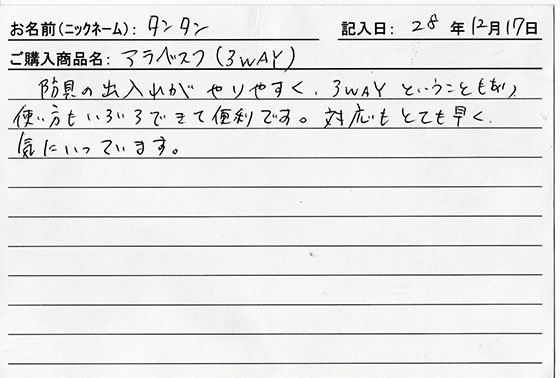 お名前(ニックネーム): タンタン 記入日: 28年12月17日
ご購入商品名: アラベスク(3WAY)
防具の出入れがやりやすく、3WAYということもあり
使い方もいろいろできて便利です。対応もとても早く、
気にいっています。